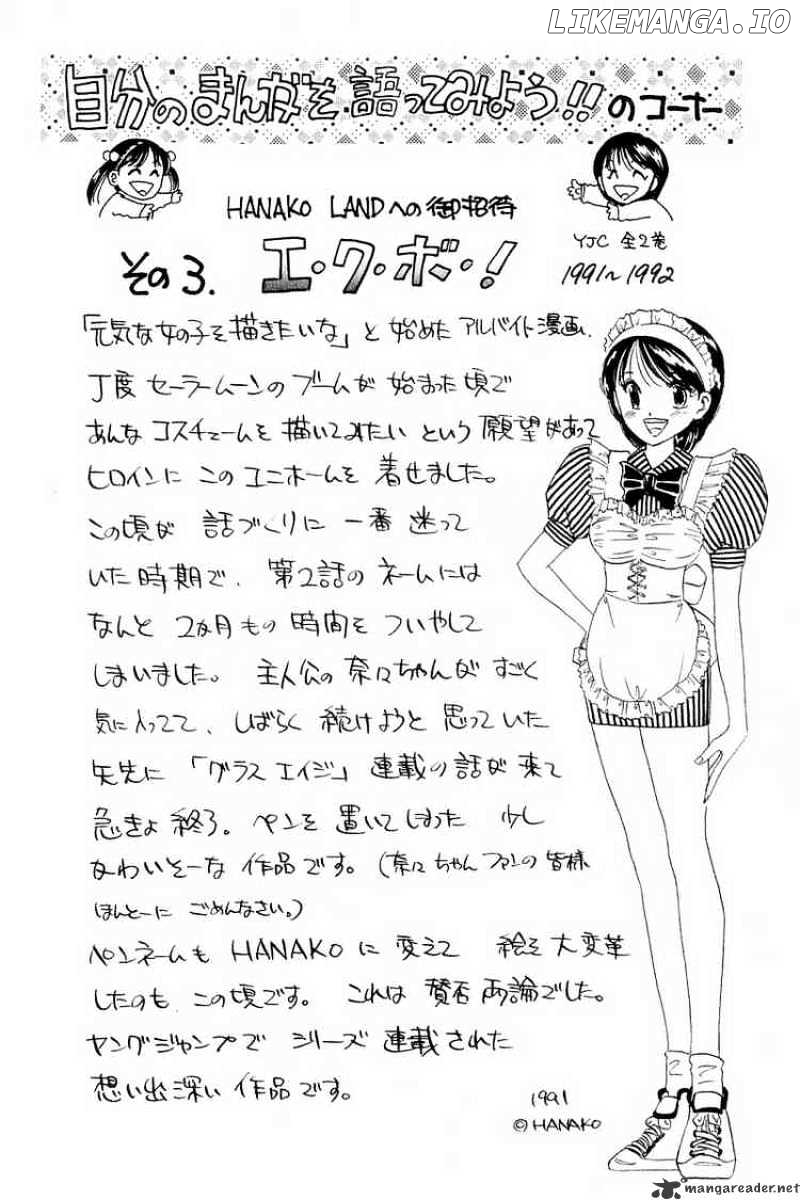 LIKEMANGA.IO
自分のまんがを語ってみよう!!のコーナー
HANAKO LANDへの御招待
その3.
エ・ク・ボ・!
YJC 全2巻
1991〜1992
「元気な女の子を描きたいな」と始めたアルバイト漫画、
丁度セーラームーンのブームが始まった頃で
あんなコスチュームを描いてみたいという願望があって
ヒロインにこのユニホームを着せました。
この頃が話づくりに一番迷って
いた時期で、第2話のネームには
なんと2ヵ月もの時間をついやして
しまいました。主人公の奈々ちゃんがすごく
気に入ってて、しばらく続けようと思っていた
矢先に「グラスエイジ」連載の話が来て
急きょ終了。ペンを置いてしまった少し
かわいそーな作品です。(奈々ちゃんファンの皆様
ほんとーにごめんなさい。)
ペンネームもHANAKOに変えて絵を大変革
したのもこの頃です。これは賛否両論でした。
ヤングジャンプでシリーズ連載された
想い出深い作品です。
1991
©HANAKO
mangareader.net